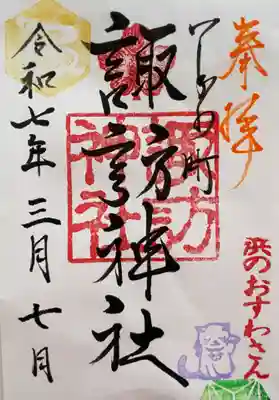 奉拝
町
諏訪神社
諏訪
神社
令和七年三月七日
浜のおすわさん